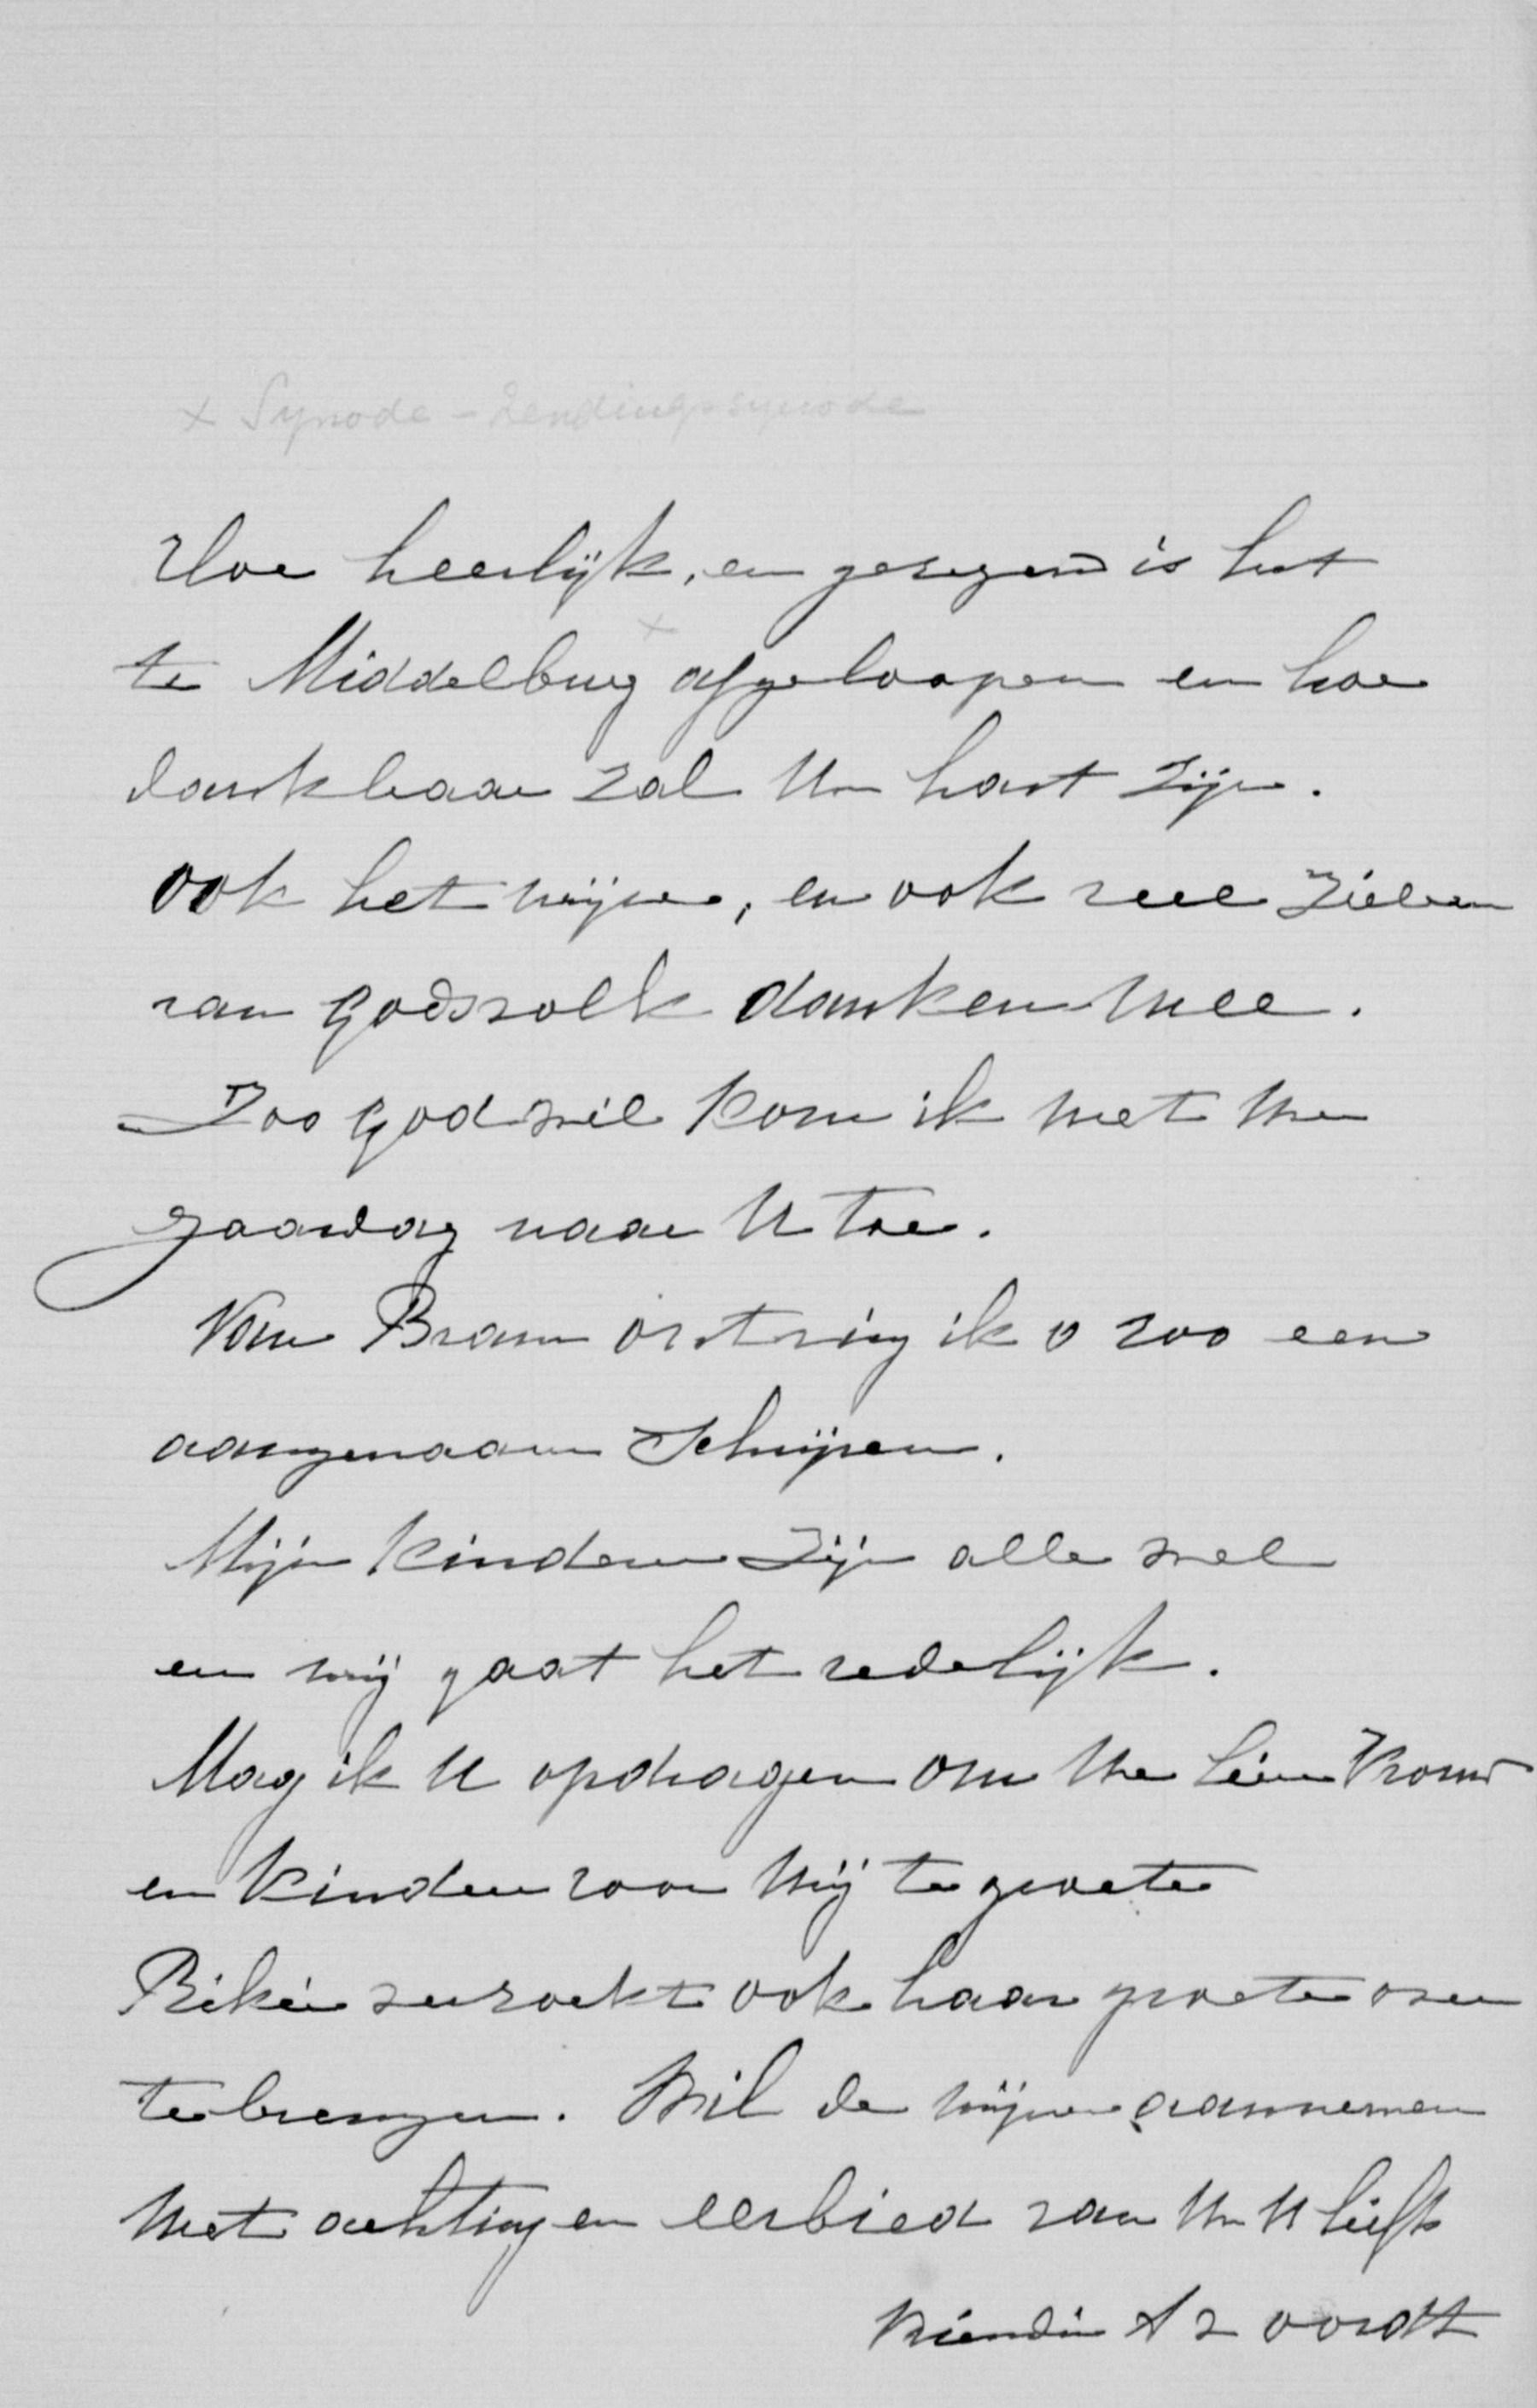 x Synode - Zendingssynode
Hoe heerlijk, en gezegend is het
te Middelburg x afgeloopen en hoe
dankbaar zal Uw hart zijn.
Ook het mijne, en ook veel zielen
van Godsvolk danken mee.
Zoo God wil kom ik met Uw
jaardag naar U toe.
Van Bram ontving ik o zoo een
aangenaam schrijven.
Mijn kinderen zijn alle wel
en mij gaat het redelijk.
Mag ik U opdragen om Uw lieve Vrouw
en kinderen voor mij te groeten
verzoekt ook haar groeten over
te brengen. Wil de mijne aannemen
Met achting en eerbied van Uw U liefh
Vriendin A v oordt